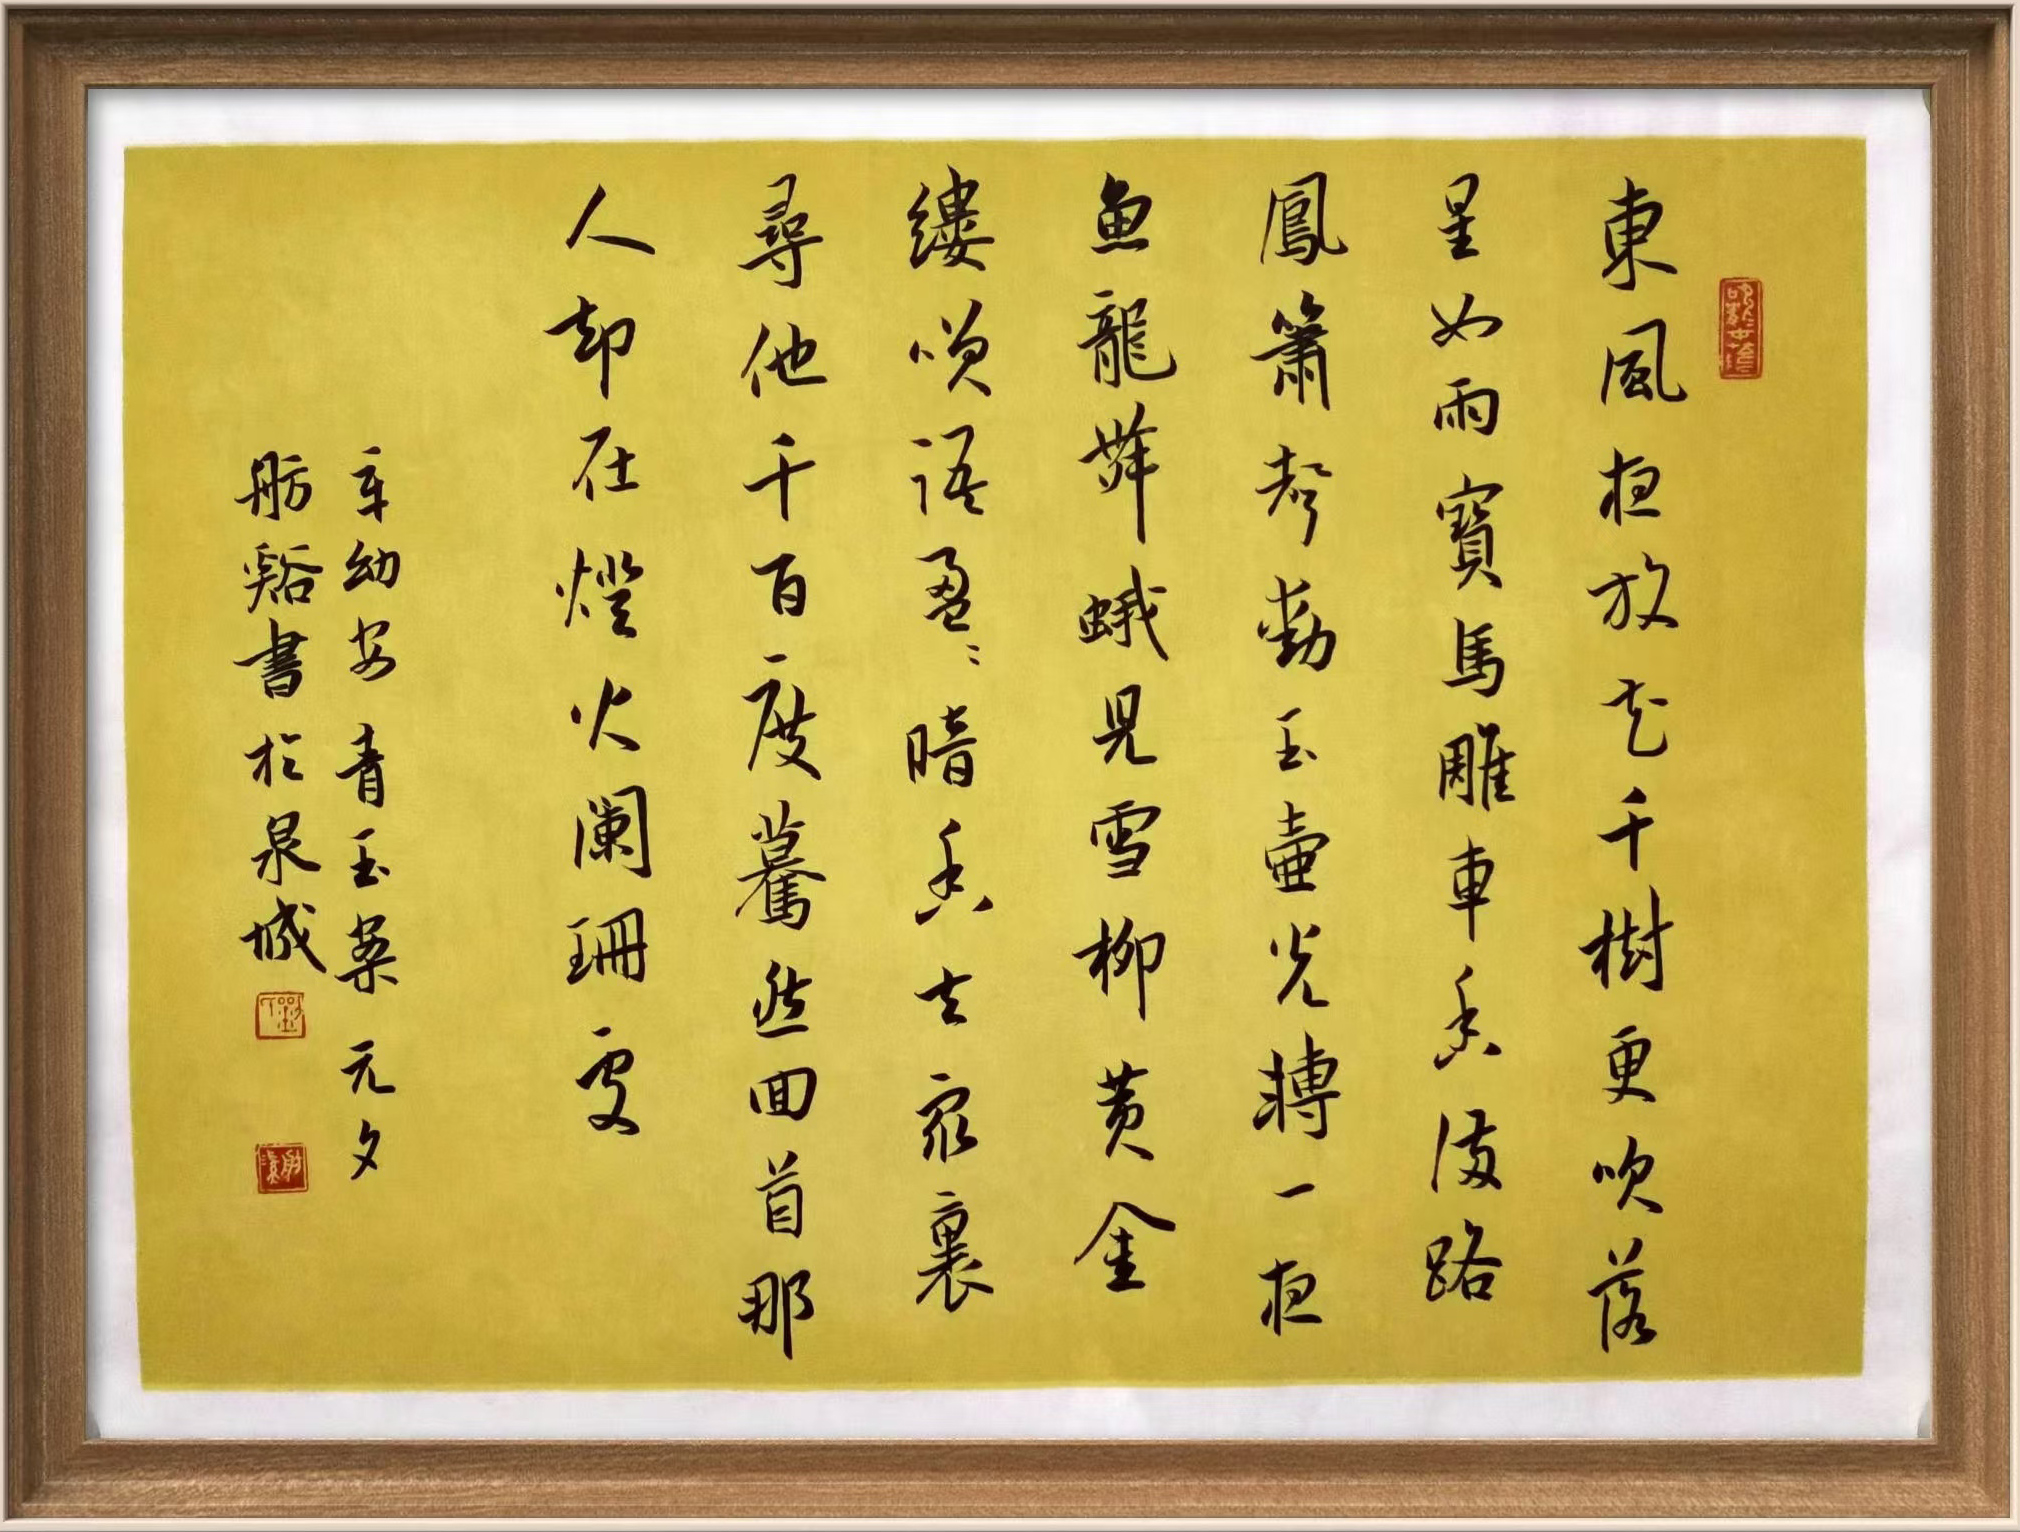 東風夜放花千樹更吹落
星如雨寶馬雕車香滿路
鳳簫聲動玉壺光轉一夜
魚龍舞蛾兒雪柳黄金
縷笑語盈〻暗香去衆裏
尋他千百度驀然回首那
人却在燈火闌珊處
辛幼安青玉案元夕
舫谿書於泉城